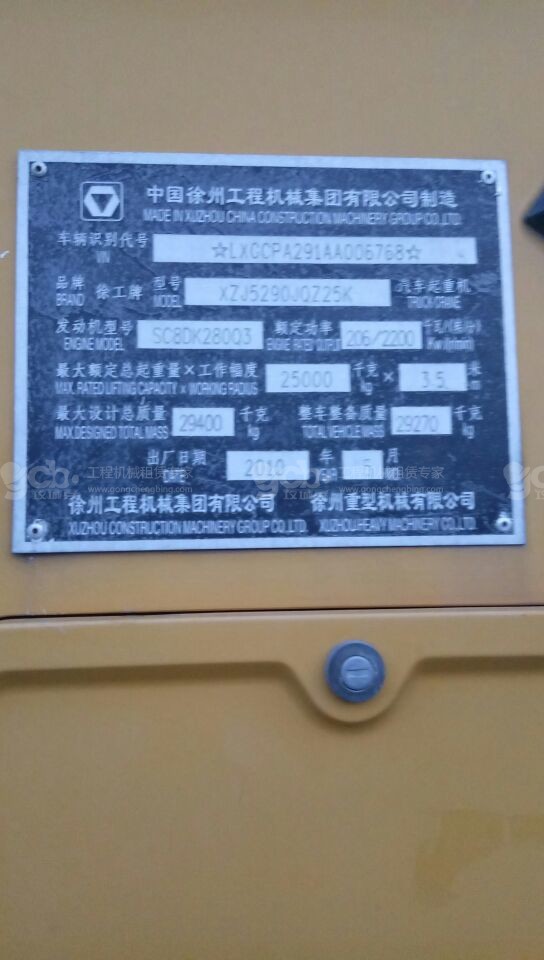 中国徐州工程机械集团有限公司制造
MADE IN XUZHOU CHINA CONSTRUCTION MACHINERY GROUP CO.,LTD.
车辆识别代号 ☆LXGCPA291AA006768☆
VIN
品牌 徐工牌 型号 XZJ5290JQZ25K 汽车起重机
BRAND MODEL TRUCK CRANE
发动机型号 SC8DK280Q3 额定功率 206/2200 千瓦/(转/分)
ENGINE MODEL ENGINE RATED OUTPUT Kw/(r/min)
最大额定总起重量×工作幅度 25000 千克 × 3.5 米
MAX. RATED LIFTING CAPACITY × WORKING RADIUS kg m
最大设计总质量 29400 千克 整车整备质量 29270 千克
MAX.DESIGNED TOTAL MASS kg TOTAL VEHICLE MASS kg
出厂日期 2010 年 5 月
DATE YEAR
gcb 工程机械租赁专家
www.gongchengbing.com
徐州工程机械集团有限公司 徐州重型机械有限公司
XUZHOU CONSTRUCTION MACHINERY GROUP CO.,LTD. XUZHOU HEAVY MACHINERY CO.,LTD.